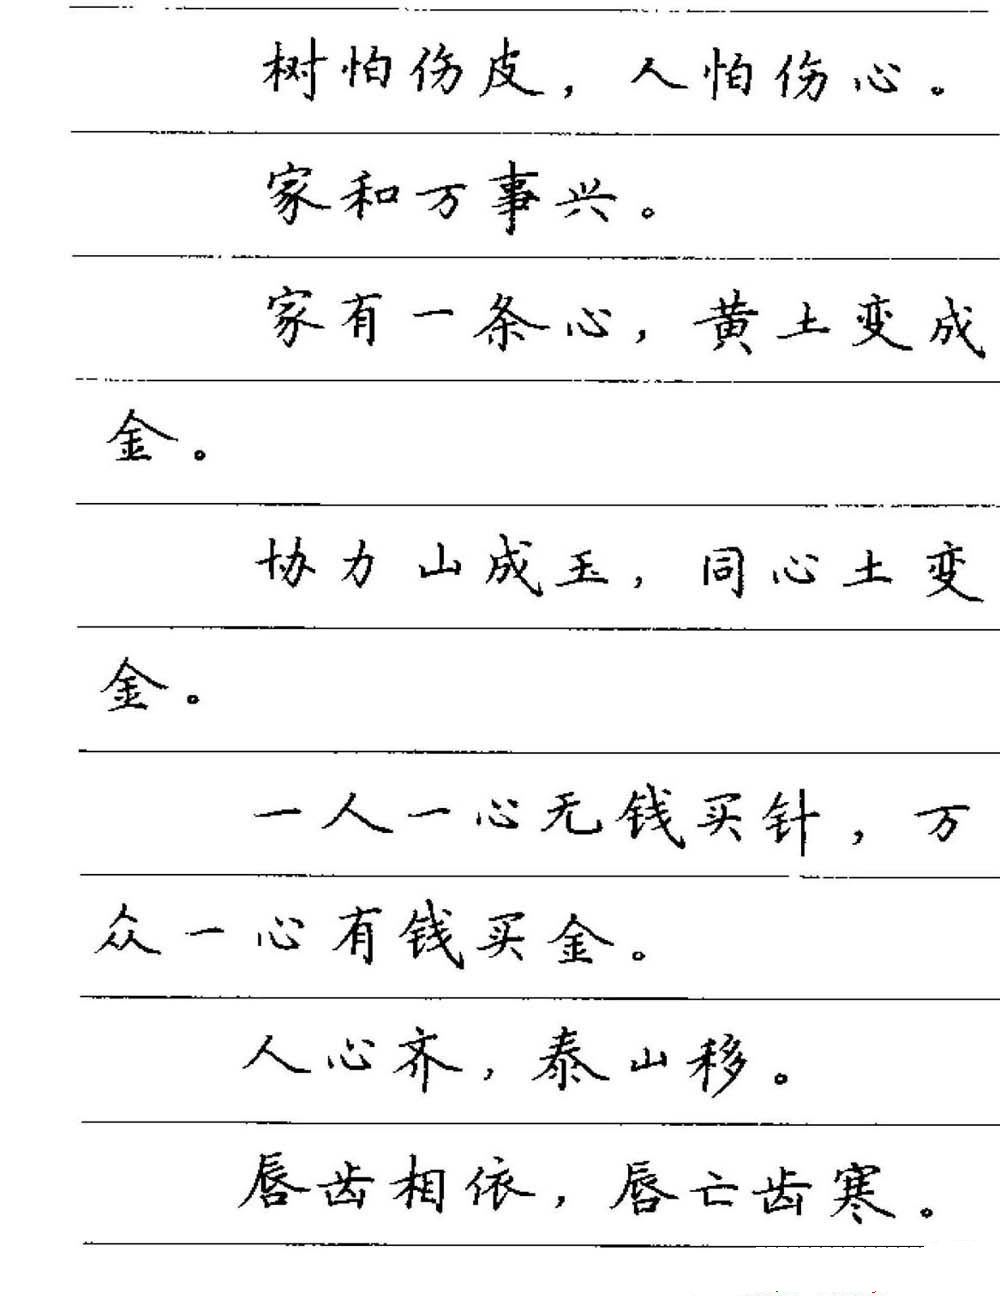 树怕伤皮，人怕伤心。
家和万事兴。
家有一条心，黄土变成
金。
协力山成玉，同心土变
金。
一人一心无钱买针，万
众一心有钱买金。
人心齐，泰山移。
唇齿相依，唇亡齿寒。